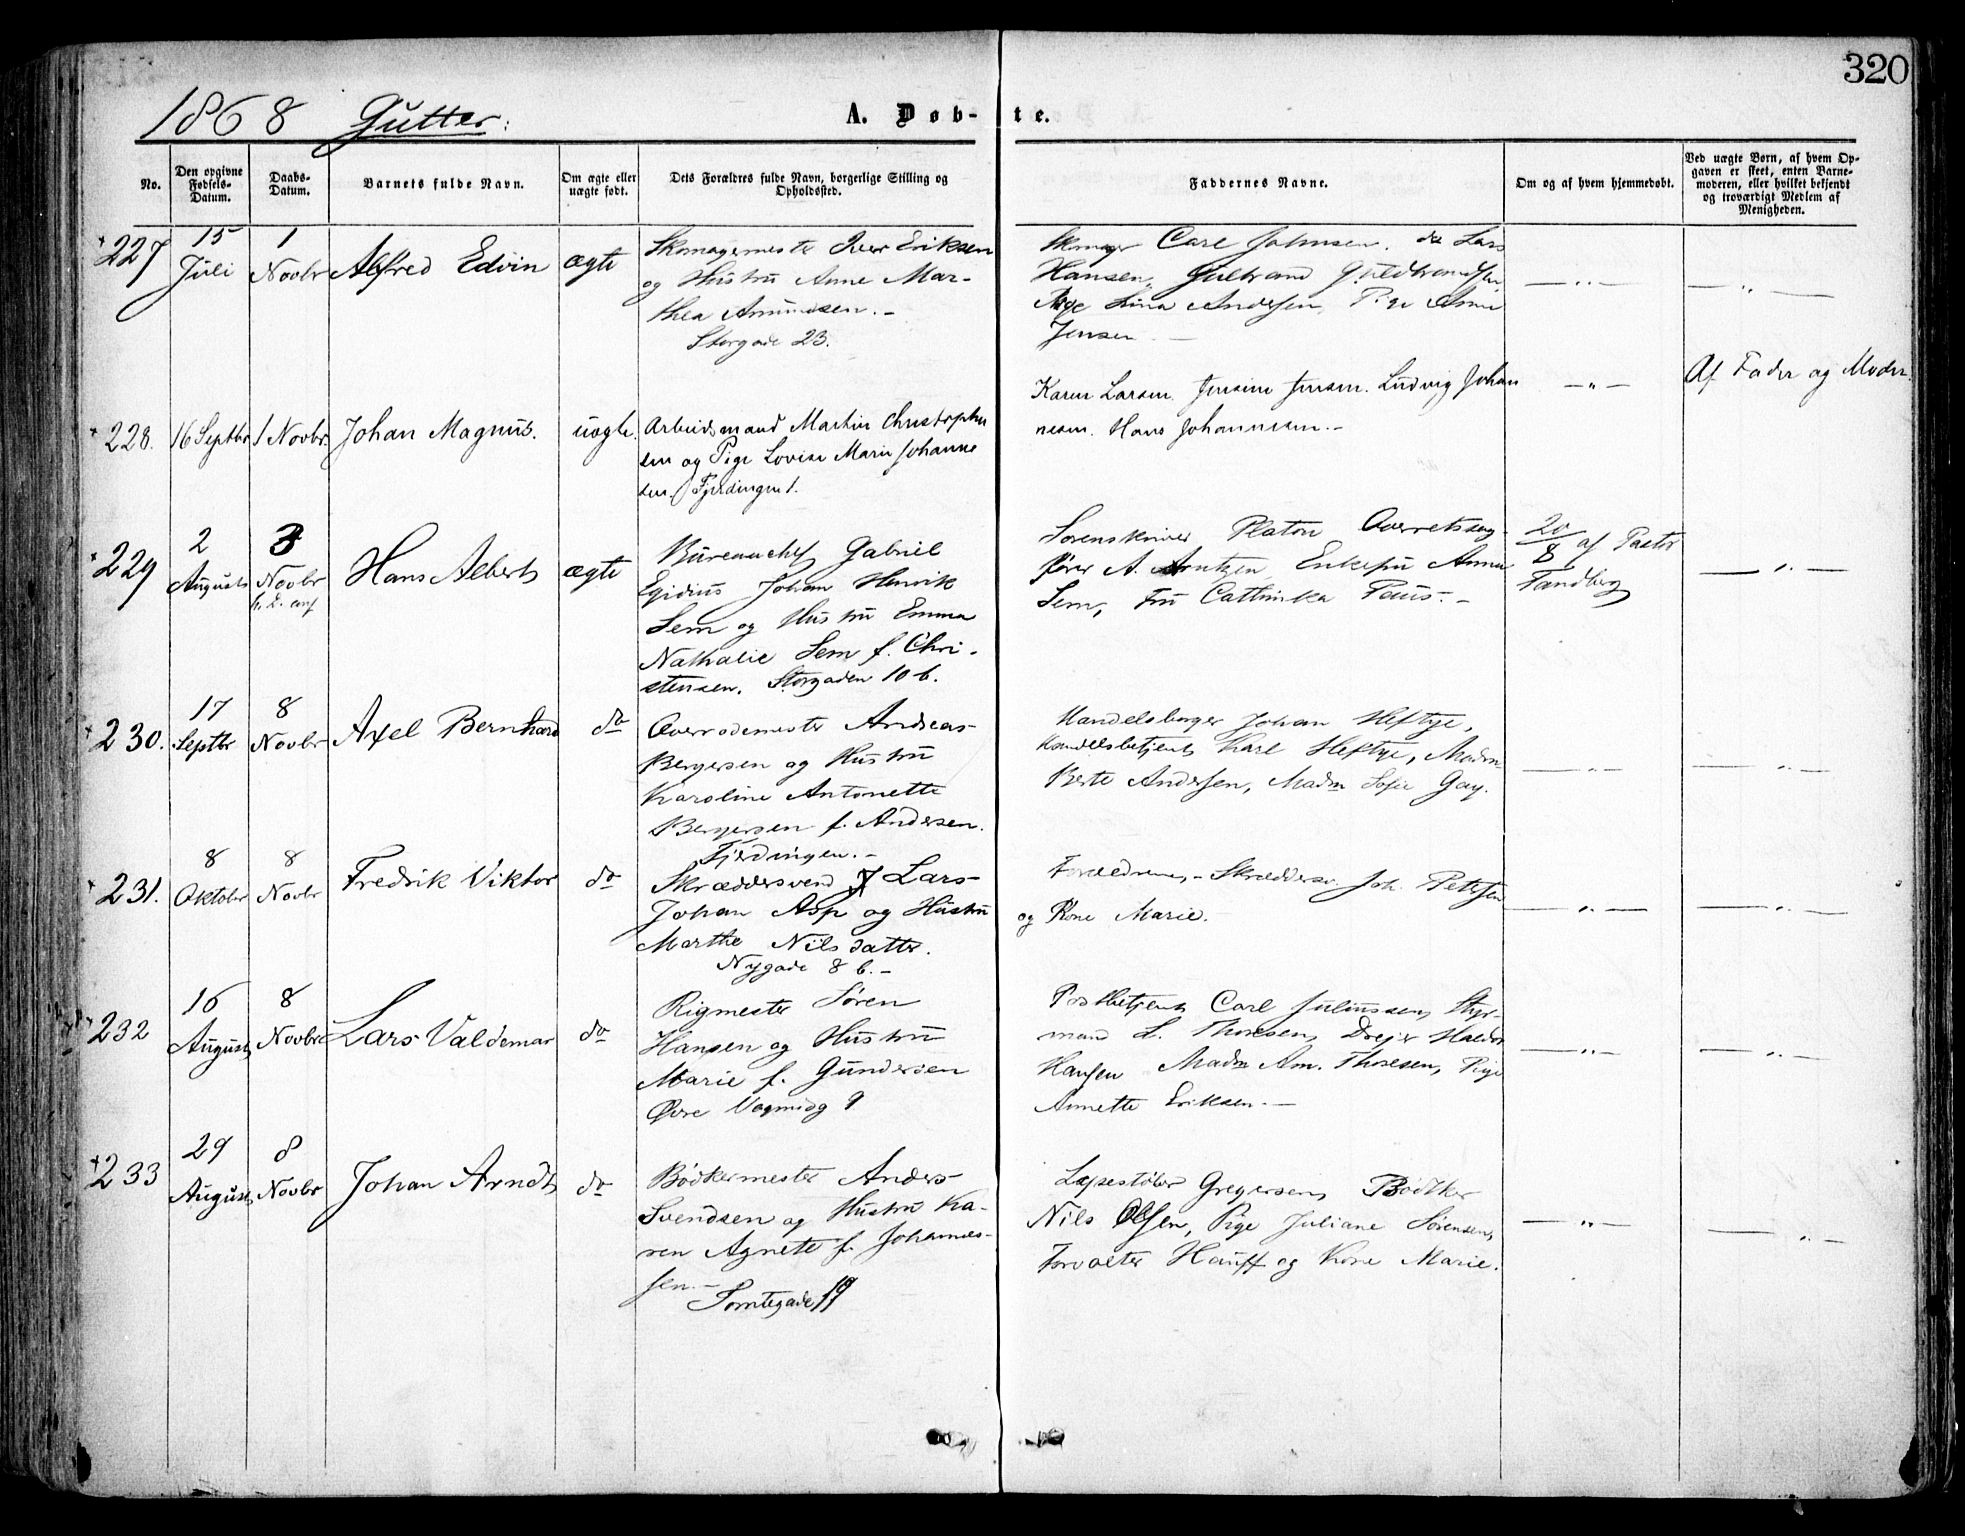 320
1868 Gutter:
A. Døbte.
No.
Den opgivne Fødsels-Datum.
Daabs-Datum.
Barnets fulde Navn.
Om ægte eller uægte født.
Dets Forældres fulde Navn, borgerlige Stilling og Opholdssted.
Faddernes Navne.
Om og af hvem hjemmedøbt.
Ved uægte Børn, af hvem Opgaven er skeet, enten Barnemoderen, eller hvilket bekjendt og troværdigt Medlem af Menigheden.
227
15 Juli
1 Novbr
Alfred Edvin
ægte
Skomagermester Iver Eriksen
og Hustru Anne Mar-
thea Amundsen.-
Storgade 23.
Skomager Carl Johnsen. do Lars
Hansen, Gulbrand Guldbrandsen,
Pige Lina Andersen, Pige Anne
Jensen -
— „ —
— „ —
228.
16 Septbr
1 Novbr.
Johan Magnus.
uægte.
Arbeidsmand Martin Christophe
sen og Pige Lovise Marie Johanne
sen. Fjerdingen 1.
Karen Larsen. Jensine Jensen. Ludvig Johan
nesen. Hans Johannesen.-
— „ —
Af Fader og Moder.
229
2 August
8 Novbr
h. D. conf
Hans Albert
ægte
Bureauchef Gabriel
Egidius Johan Henrik
Sem og Hustru Emma
Nathalie Sem f. Chri-
stensen. Storgaden 10 b.
Sorenskriver Platou Overretssag-
fører A. Arntzen Enkefru Anna
Sem, Fru Cathinka Paus.-
20/8 af Pastor
Tandberg
— „ —
230.
17 Septbr
8 Novbr
Axel Bernhard
do
Overrodemester Andreas
Bergersen og Hustru
Karoline Antonette
Bergersen f. Andersen.
Fjerdingen.-
Handelsborger Johan Heftye,
Handelsbetjent Karl Heftye, Madm
Berte Andersen, Madm Sofie Gay.
— „ —
— „ —
231.
8 Oktober
8 Novbr
Fredrik Viktor
do
Skræddersvend Lars
Johan Asp og Hustru
Marthe Nilsdatter.
Nygade 8 b.-
Forældrene,- Skræddersv. Joh. Petersen
og Kone Marie.-
— „ —
— „ —
232
16 August
8 Novbr
Lars Valdemar
do
Rigmester Søren
Hansen og Hustru
Marie f. Gundersen
Øvre Vognmdg 9
Postbetjent Carl Juliussen, Styr-
mand L. Thoresen, Drejer Halvor
Hansen Madm Am. Thoresen, Pige
Annette Eriksen.-
— „ —
— „ —
233
29 August
8 Novbr
Johan Arndt
do
Bødkermester Anders
Svendsen og Hustru Ka-
ren Agnete f. Johannes-
sen.-
Tomtegade 19
Løsestøber Gregersen, Bødtker
Nils Olsen, Pige Juliane Sørensen,
Forvalter Hauff og Kone Marie.
— „ —
— „ —